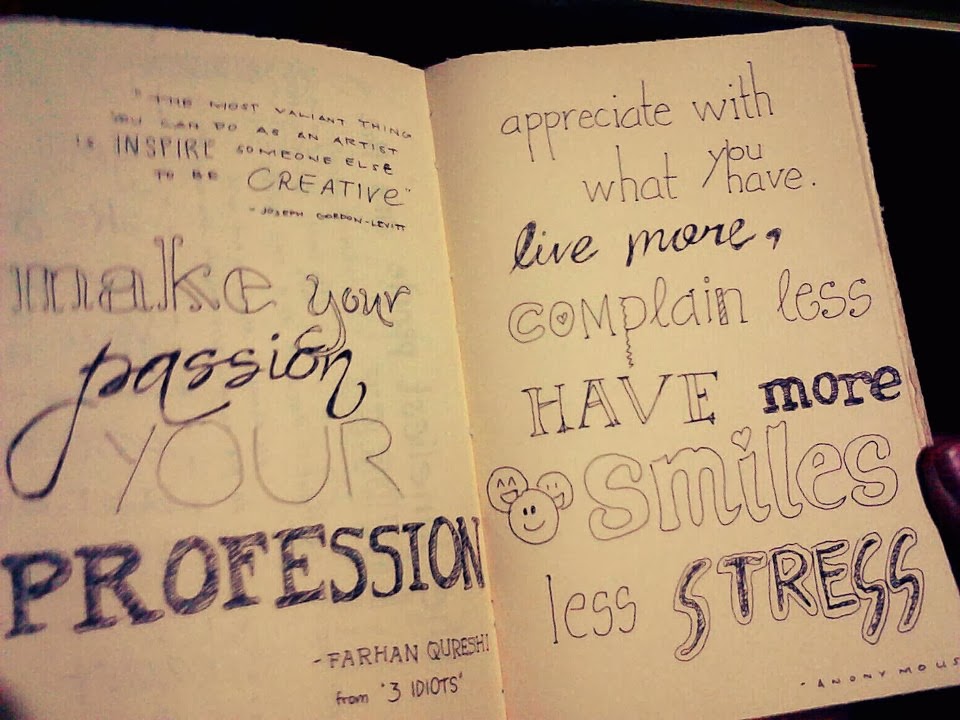 "THE MOST VALIANT THING
YOU CAN DO AS AN ARTIST
IS INSPIRE SOMEONE ELSE
TO BE CREATIVE"
- JOSEPH GORDON-LEVITT
make your
passion
YOUR
PROFESSION
- FARHAN QURESHI
from "3 IDIOTS"
appreciate with
what you have.
live more,
COMplain less
HAVE more
smiles
less STRESS
- ANONYMOUS